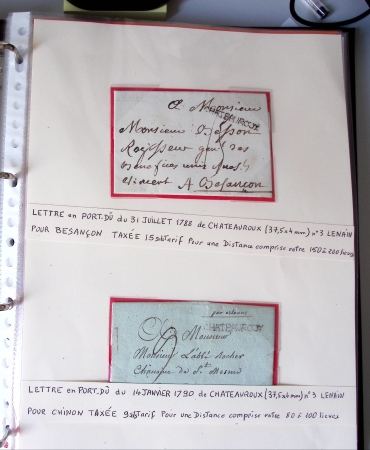 A Monsieur
CHATEAUROUX
Monsieur
Regisseur
A Besançon
LETTRE en PORT.DÛ du 31 JUILLET 1788 de CHATEAUROUX (37,5x4mm) n°3 LENAIN
POUR BESANÇON TAXÉE 15s Tarif Pour une Distance comprise entre 150 à 200 lieues
par orleans
CHATEAUROUX
A Monsieur
Monsieur L'abbé
Chanoine de St Mesme
LETTRE en PORT.DÛ du 14 JANVIER 1790 de CHATEAUROUX (37,5x4mm) n°3 LENAIN
POUR CHINON TAXÉE 9s Tarif Pour une Distance comprise entre 80 à 100 lieues